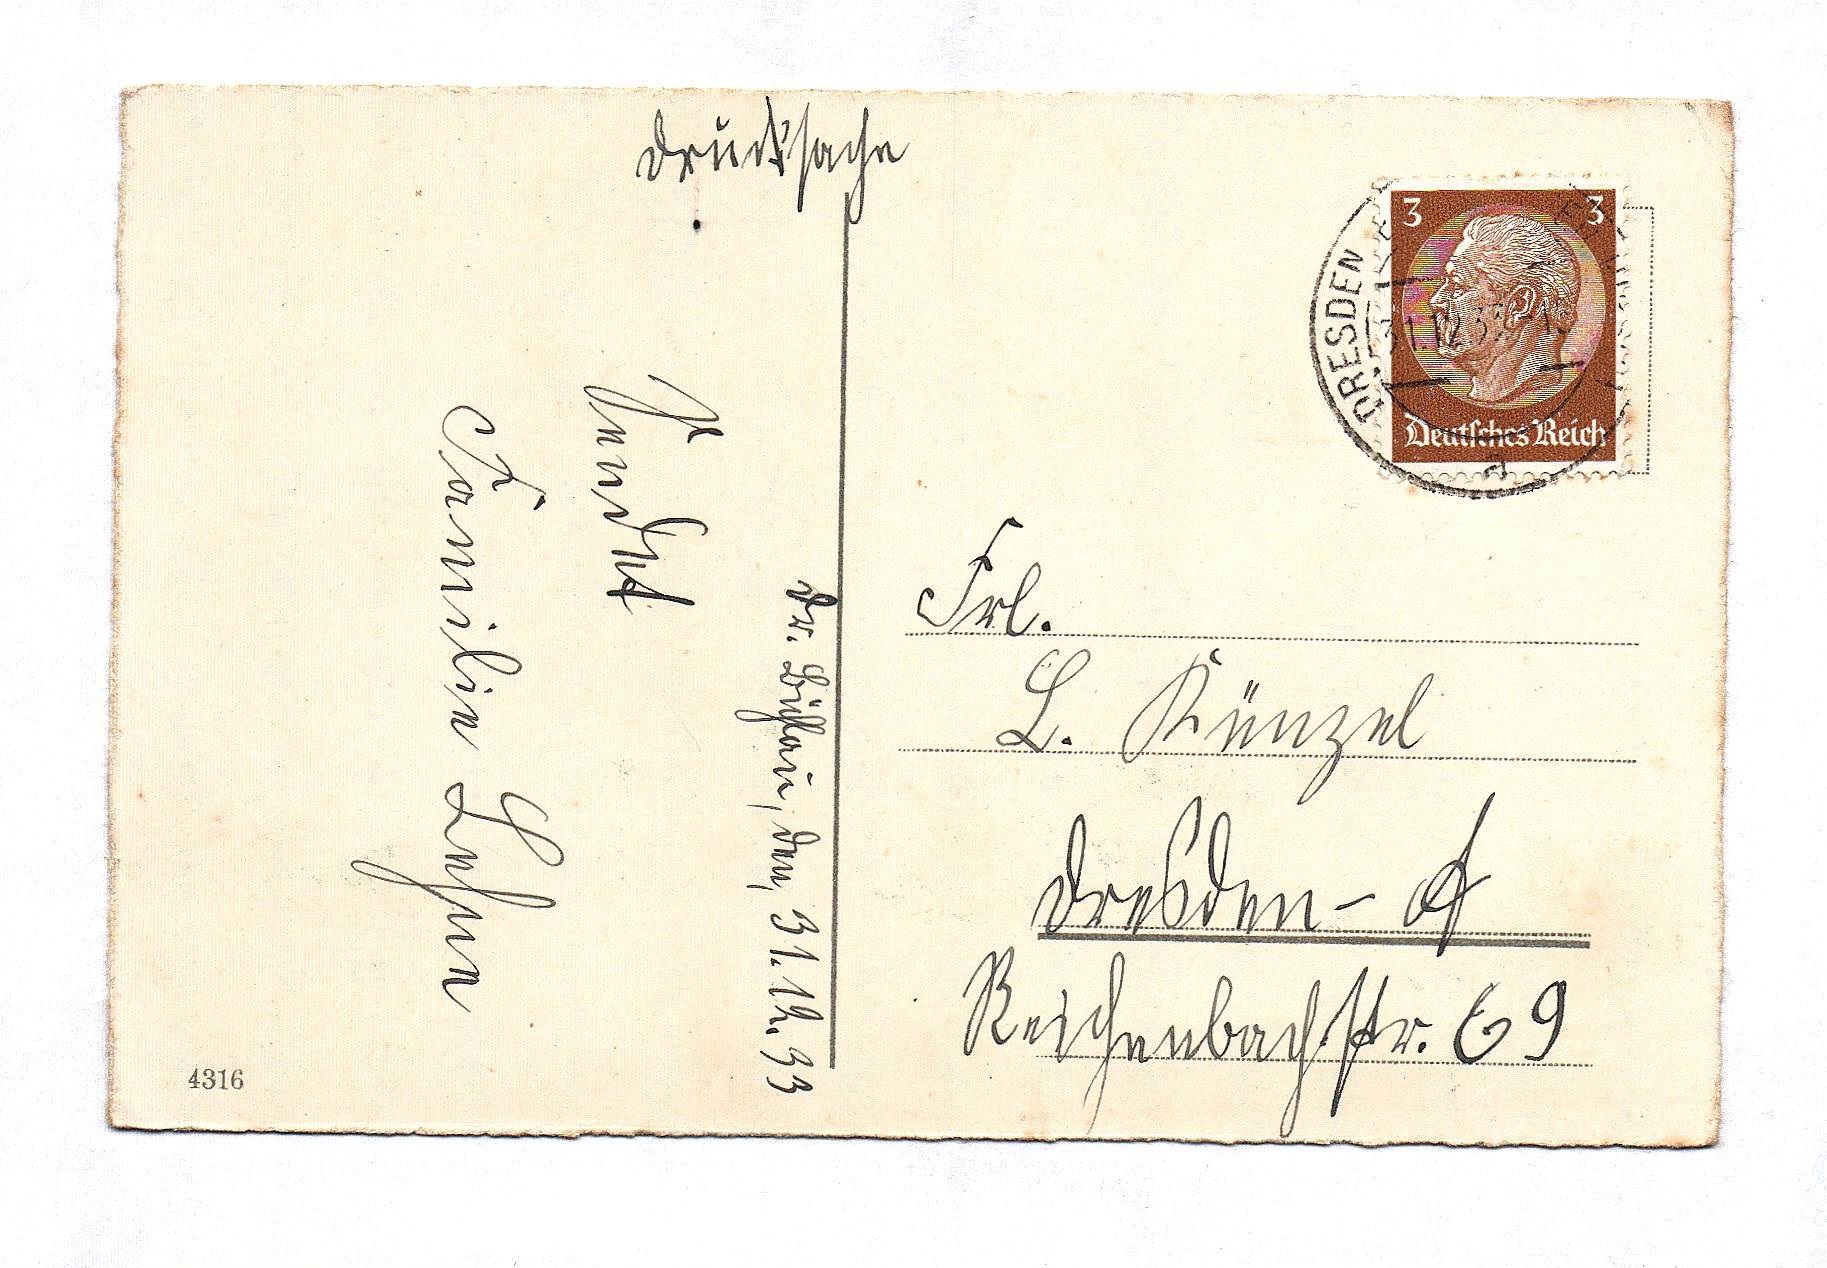 Drucksache
3 3
DRESDEN
31.12.33.
Deutsches Reich
Dr. Bühlau, den, 31.12.33
Sendet
Familie Lehn
Frl.
L. Künzel
Dresden-A
Reichenbachstr. 69
4316